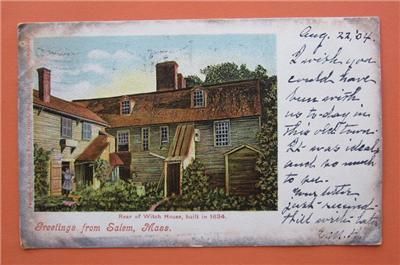 Aug. 22, '04.
I wish you
could have
been with
us to-day in
this old town.
It was ideal
and so much
to see.
Your letter
just received
Will write later
Rear of Witch House, built in 1634.
Greetings from Salem, Mass.